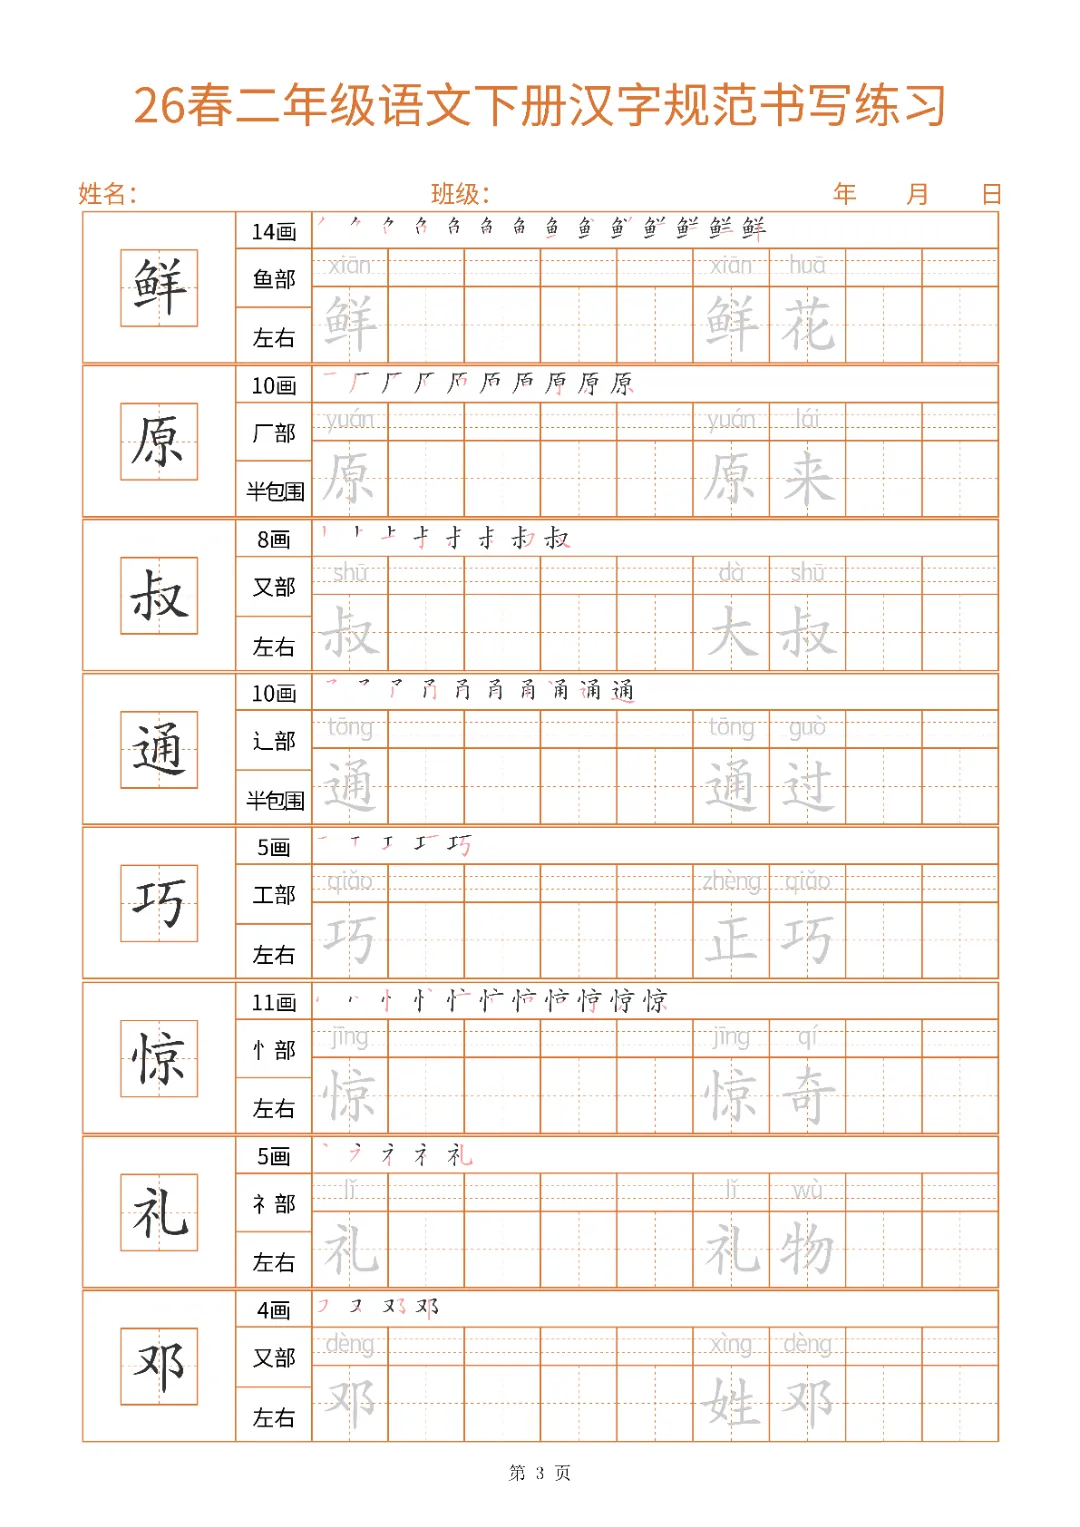 26春二年级语文下册汉字规范书写练习
姓名： 班级： 年 月 日
鲜
14画
鱼部
左右
xiān xiān huā
鲜 鲜 花
原
10画
厂部
半包围
yuán yuán lái
原 原 来
叔
8画
又部
左右
shū dà shū
叔 大 叔
通
10画
辶部
半包围
tōng tōng guò
通 通 过
巧
5画
工部
左右
qiǎo zhèng qiǎo
巧 正 巧
惊
11画
忄部
左右
jīng jīng qí
惊 惊 奇
礼
5画
礻部
左右
lǐ lǐ wù
礼 礼 物
邓
4画
又部
左右
dèng xìng dèng
邓 姓 邓
第 3 页